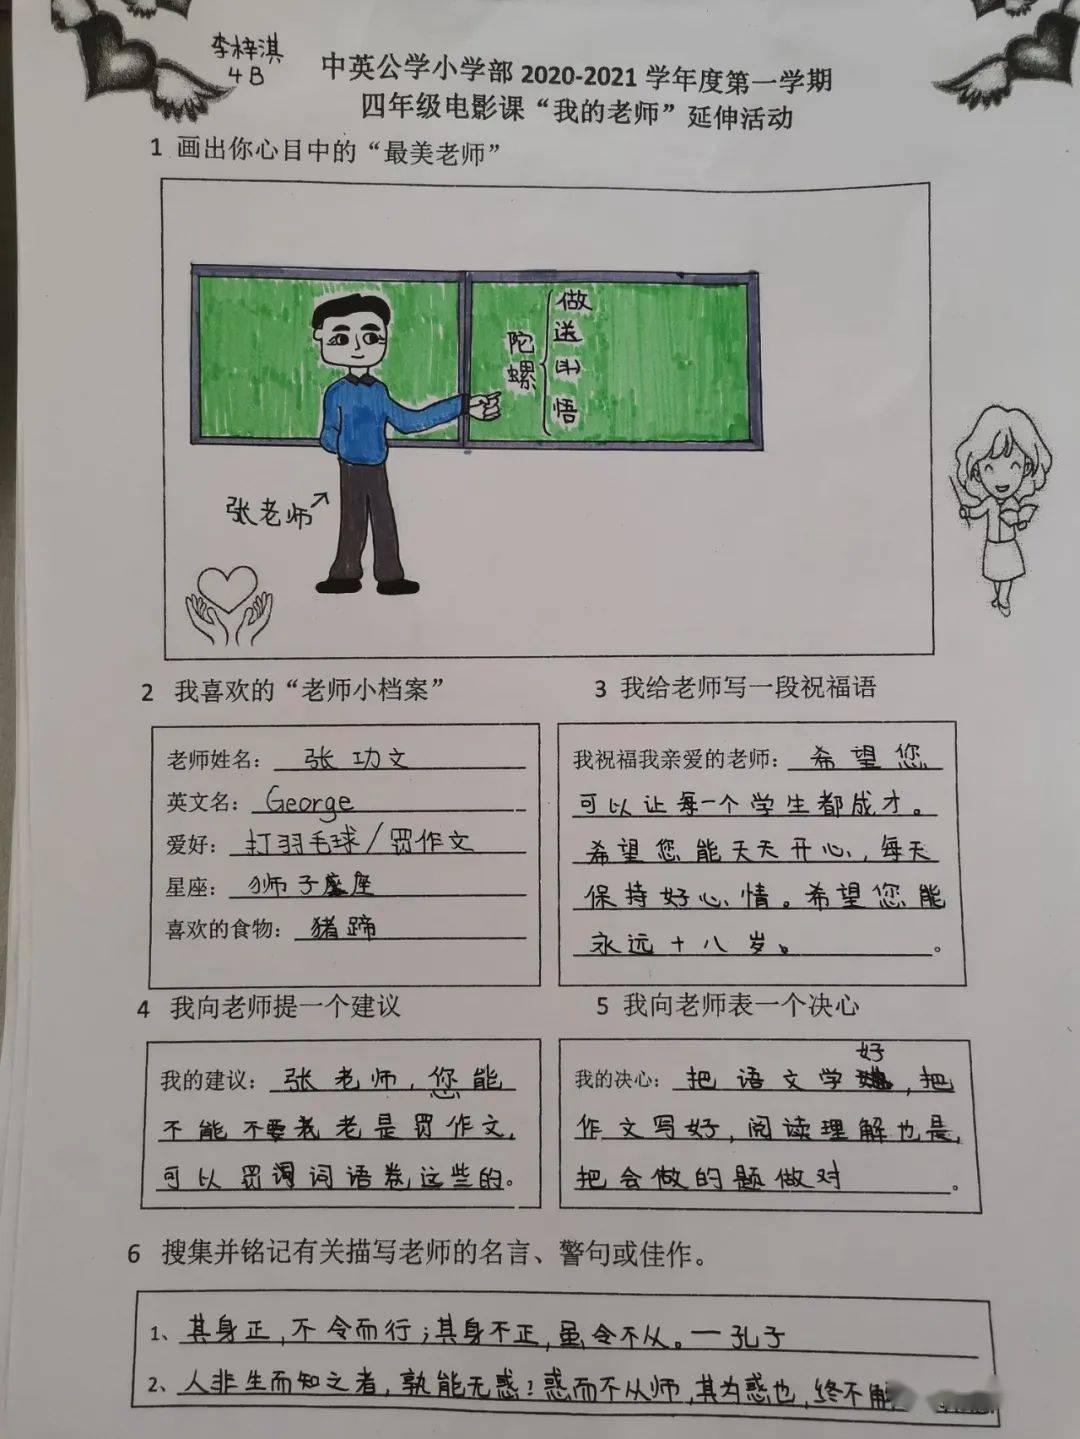 李梓淇
4B
中英公学小学部 2020-2021 学年度第一学期
四年级电影课“我的老师”延伸活动
1 画出你心目中的“最美老师”
陀螺
做
送
斗
悟
张老师
2 我喜欢的“老师小档案”
老师姓名：张功文
英文名：George
爱好：打羽毛球/罚作文
星座：狮子座
喜欢的食物：猪蹄
3 我给老师写一段祝福语
我祝福我亲爱的老师：希望您
可以让每一个学生都成才。
希望您能天天开心，每天
保持好心情。希望您能
永远十八岁。。
4 我向老师提一个建议
我的建议：张老师，您能
不能不要老是罚作文，
可以罚词语卷这些的。
5 我向老师表一个决心
我的决心：把语文学好，把
作文写好，阅读理解也是，
把会做的题做对。
6 搜集并铭记有关描写老师的名言、警句或佳作。
1、其身正，不令而行；其身不正，虽令不从。—孔子
2、人非生而知之者，孰能无惑？惑而不从师，其为惑也，终不解